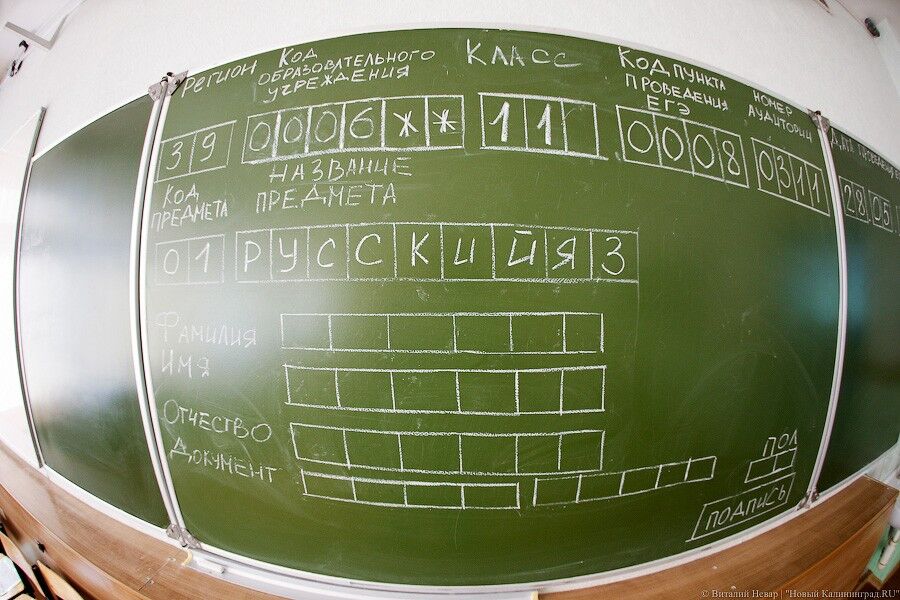 Регион
Код
образовательного
учреждения
Класс
Код пункта
проведения
ЕГЭ
Номер
аудитории
39
0006**
11
0008
0311
28 05
Код
предмета
Название
предмета
01
РУССКИЙЯЗ
Фамилия
Имя
Отчество
Документ
Пол
Подпись
© Виталий Невар | "Новый Калининград.RU"